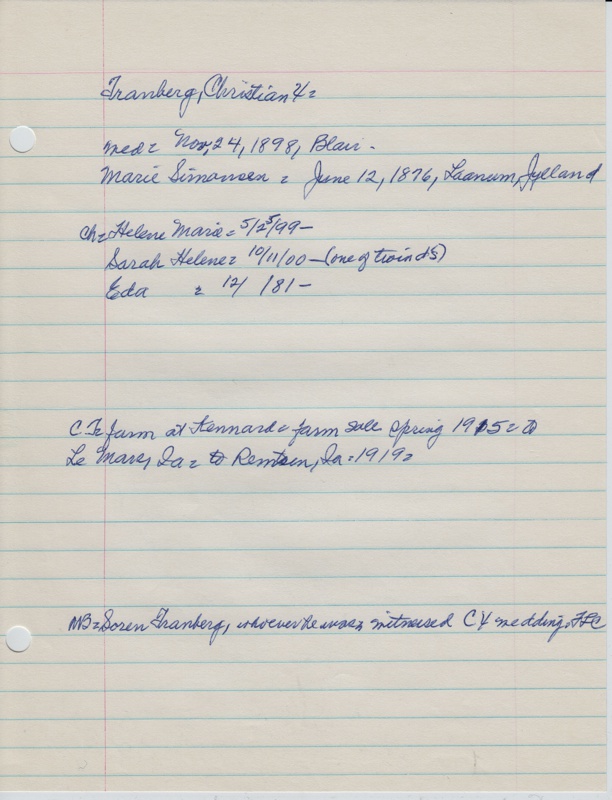 Tranberg, Christian 4=
med= Nov, 24, 1898, Blair -
Marie Simonsen = June 12, 1876, Laanum, Jylland
ch= Helene Marie= 5/25/99-
Sarah Helene= 10/11/00-(one of twin ds)
Eda = 12/ /81-
C.T= farm at Kennard= farm sale spring 1915= to
Le Mars, Ia= to Remsen, Ia=1919=
NB= Soren Tranberg, whoever he was, witnessed C4 wedding.